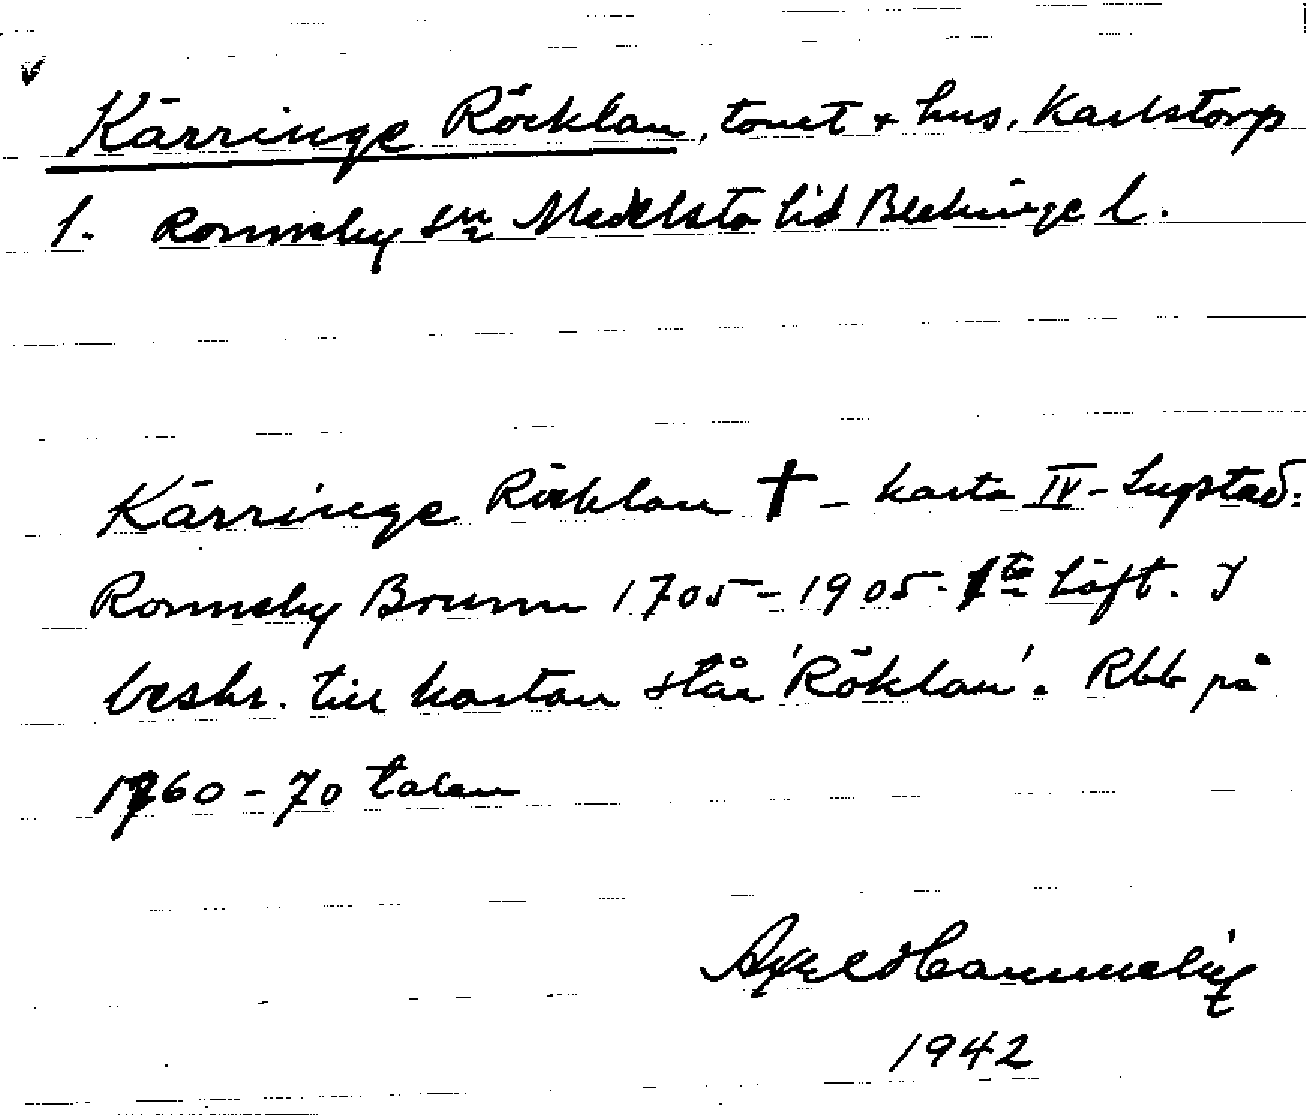 v
Kärringe Röcklan, tomt + hus, Karlstorp
1. Ronneby sn Medelsta hd Blekinge l.
Kärringe Röcklan † - karta IV - Lugstad:
Ronneby Brunn 1705 - 1905. 1ta häft. I
beskr. till kartan står 'Röklan'. Rbb på
1760 - 70 talen
Axel
1942